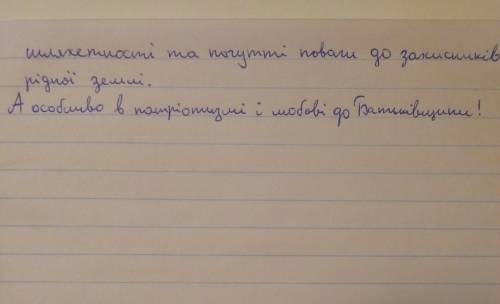 шляхетності та почутті поваги до захисників
рідної землі.
А особливо в патріотизмі і любові до Батьківщини!